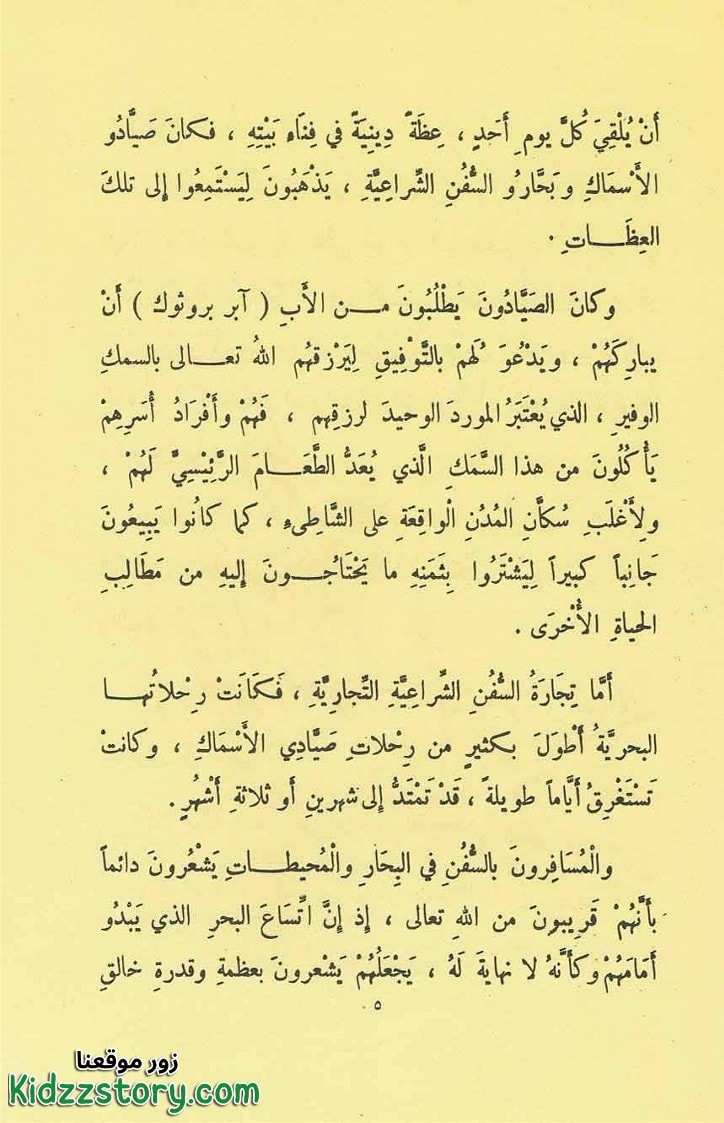 أَنْ يُلْقِيَ كُلَّ يومِ أَحَدٍ ، عِظَةً دِينِيَةً في فِنَاءِ بَيْتِهِ ، فكانَ صَيَّادُو
الأَسْماكِ وبَحَّارُو السُّفُنِ الشِّراعِيَّةِ ، يَذْهَبُونَ لِيَسْتَمِعُوا إلى تلكَ
العِظَـــاتِ .
وكانَ الصَيَّادُونَ يَطْلُبُونَ مـــن الأَبِ ( آبر بروثوك ) أَنْ
يبارِكَهُمْ ، ويَدْعُوَ لَهُمْ بالتَّوْفِيقِ لِيَرْزقهُم اللهُ تعـــالى بالسمكِ
الوفيرِ ، الذي يُعْتَبَرُ الموردَ الوحيدَ لرزقِهم ، فَهُمْ وأَفْرَادُ أُسَرِهِمْ
يَأْكُلُونَ من هذا السَّمَكِ الَّذي يُعَدُّ الطَّعَـــامَ الرَّئِيْسِيَّ لَهُمْ ،
ولِأَغْلَبِ سُكَّانِ المُدُنِ الْواقِعَةِ على الشَّاطِىءِ ، كما كانُوا يَبِيعُونَ
جَانِباً كبيراً لِيَشْتَرُوا بِثَمَنِهِ ما يَحْتَاجُـــونَ إليهِ من مَطَالِبِ
الحياةِ الأُخْرَى .
أَمَّا تِجَارَةُ السُّفُنِ الشِّراعِيَّةِ التِّجارِيَّةِ ، فَكَانَتْ رِحْلاتُهـــا
البحريَّةُ أَطْوَلَ بكثيرٍ من رِحْلاتِ صَيَّادِي الأَسْماكِ ، وكانتْ
تَسْتَغْرِقُ أَيَّاماً طويلةً ، قَدْ تَمْتَدُّ إلى شهرينِ أَو ثلاثةِ أَشْهُرٍ .
والْمُسَافِرونَ بالسُّفُنِ في البِحَارِ والْمُحيطـــاتِ يَشْعُرونَ دائماً
بأَنَّهُمْ قَرِيبونَ من اللهِ تعالى ، إذ إنَّ اتِّساعَ البحرِ الذي يَبْدُو
أَمَامَهُمْ وكأَنَّهُ لا نهايةَ لَهُ ، يَجْعَلُهُمْ يَشْعرونَ بعظمةِ وقدرةِ خالقِ
٥
زور موقعنا
Kidzzstory.com